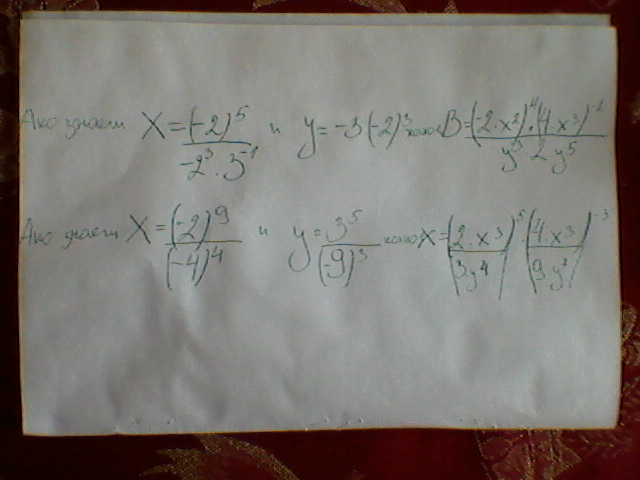 Ако знаеш X = (-2)^5 / (-2^3 · 3^-1) и y = -3(-2)^3 колко B = (-2·x^2 / y^3)^4 · (4·x^3 / 2y^5)^-1
Ако знаеш X = (-2)^9 / (-4)^4 и y = 3^5 / (-9)^3 колко X = (2·x^3 / 3y^4)^5 · (4·x^3 / 9y^7)^-3